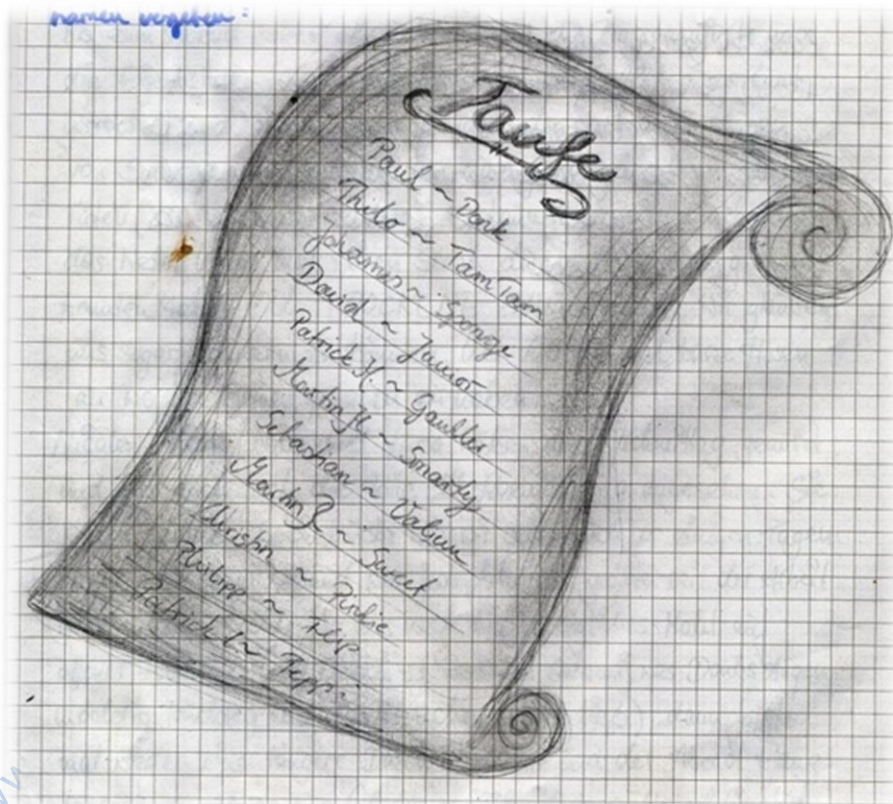 namen vergeben:
Taufe
Paul ~ Donk
Thilo ~ TamTam
Johannes ~ Sponge
David ~ Junior
Patrick H. ~ Gaukler
Martin H. ~ Smarty
Sebastian ~ Valium
Martin Z. ~ Sweet
Christin ~ Pinkie
Philipp ~ Flip
Patrick ~ Peppi